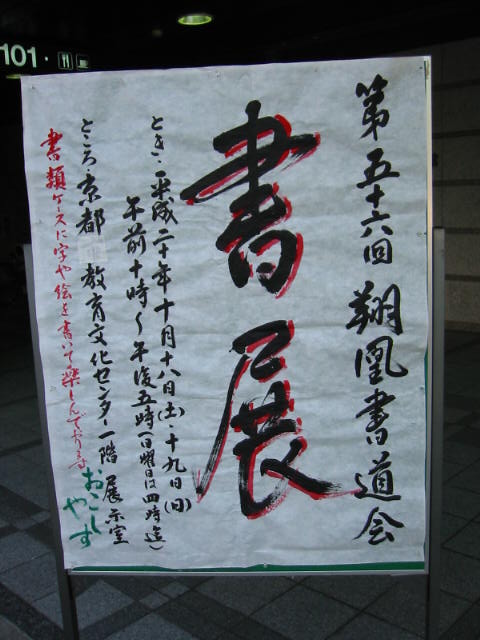 第五十六回 翔凰書道会
書展
とき・平成二十年十月十八日(土)・十九日(日)
午前十時〜午後五時(日曜日は四時迄)
ところ・京都 教育文化センター一階 展示室
書類ケースに字や絵を書いて楽しんでおります
おこしやす
101・